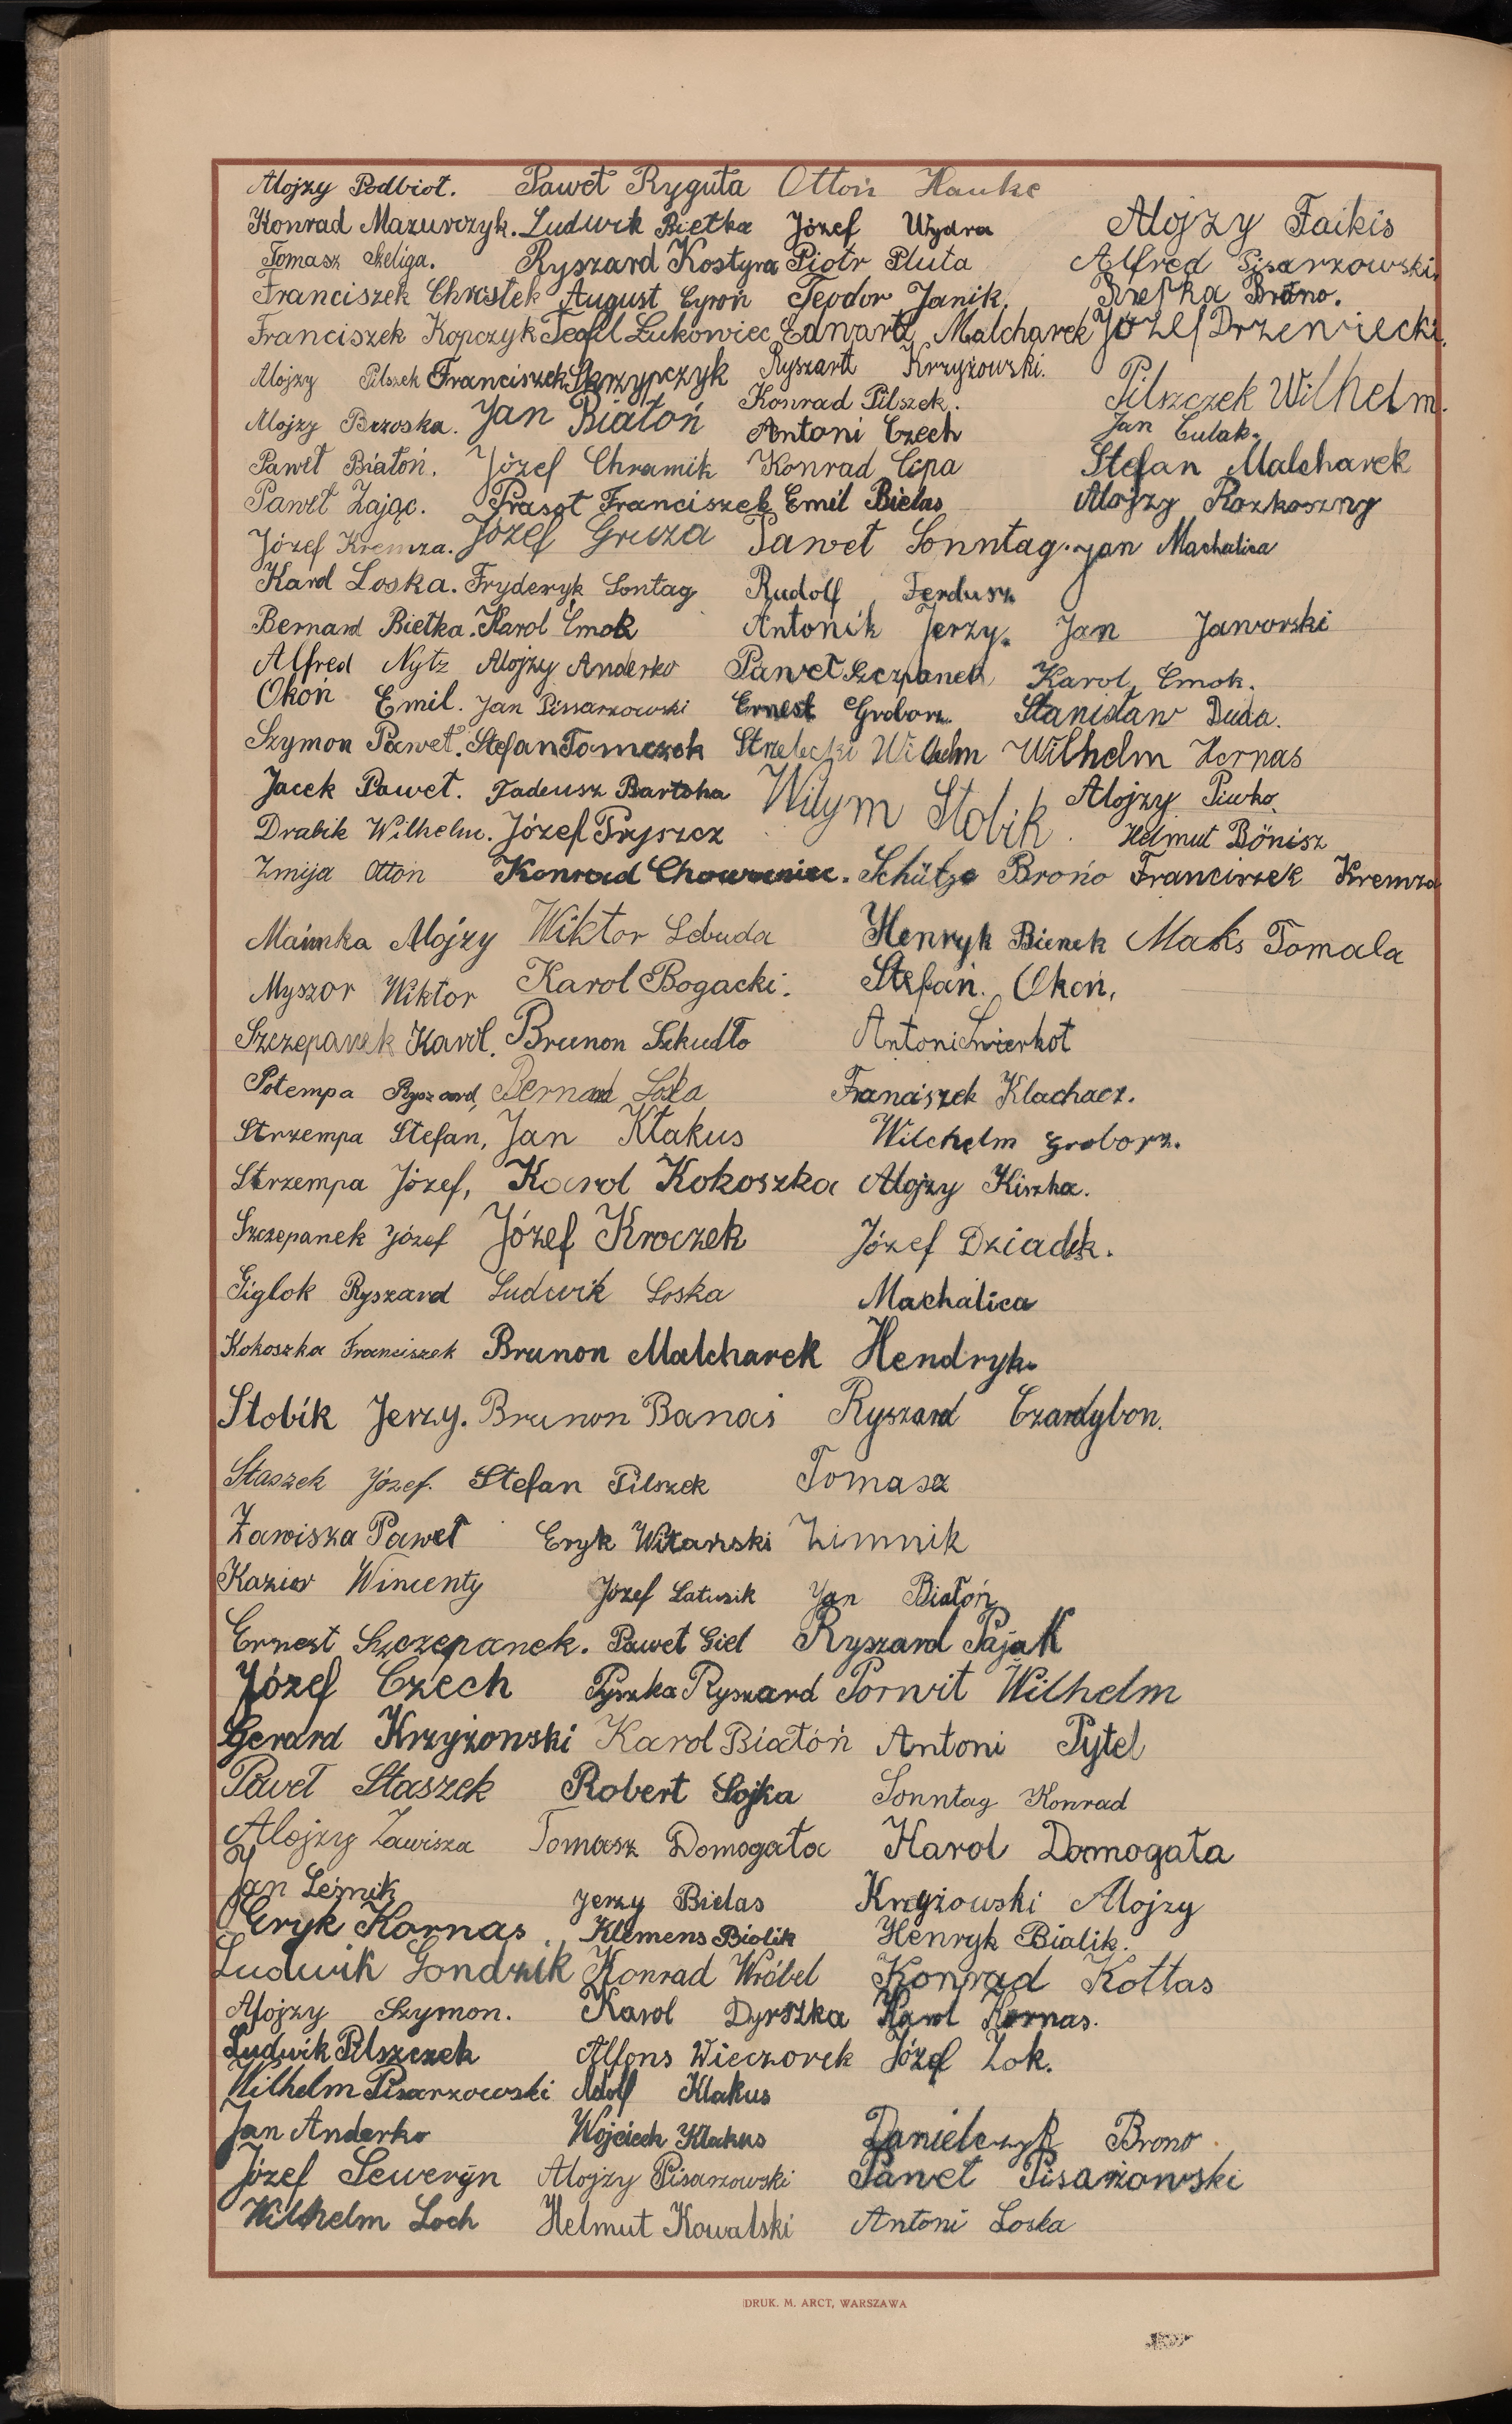 Alojzy Podbioł. Paweł Ryguła Otton Hauke
Konrad Mazurczyk. Ludwik Bietka Józef Wydra Alojzy Faikis
Tomasz Szeliga. Ryszard Kostyra Piotr Pluta Alfred Pisarzowski
Franciszek Chrostek August Cyroń Teodor Janik. Rzepka Brono.
Franciszek Kopczyk Teofil Łukowiec Edwart Malcharek Józef Drzewiecki.
Alojzy Pilszek Franciszek Skrzypczyk Ryszart Krzyżowski. Pilszczek Wilhelm.
Alojzy Brzoska. Jan Białoń Konrad Pilszek. Jan Culak.
Antoni Czech
Paweł Białoń. Józef Chramik Konrad Cipa Stefan Malcharek
Paweł Zając. Prasoł Franciszek Emil Bielas Alojzy Rozkoszny
Józef Kremza. Józef Gruza Paweł Sonntag. Jan Machalica
Karol Loska. Fryderyk Sontag Rudolf Ferdusz
Bernard Bietka. Karol Cmok Antonik Jerzy. Jan Jaworski
Alfred Nytz Alojzy Anderko Paweł Szczpanek Karol Cmok.
Okoń Emil. Jan Pissarzowski Ernest Groborz. Stanisław Duda.
Szymon Paweł. Stefan Tomczok Strzelecki Wilhelm Wilhelm Hornas
Jacek Paweł. Tadeusz Bartoha Wilym Stobik. Alojzy Piwko.
Drabik Wilhelm. Józef Pryszcz Helmut Bönisz
Zmija Otton Konrad Chowaniec. Schütze Brono Franciszek Kremza
Maimka Alojzy Wiktor Lebuda Henryk Bienek Maks Tomala
Myszor Wiktor Karol Bogacki. Stefan. Okoń,
Szczepanek Karol. Brunon Szkudło Antoni Świerkot
Potempa Ryszard, Bernard Loska Franciszek Klachacz.
Strzempa Stefan, Jan Kłakus Wilchelm Groborz.
Strzempa Józef, Karol Kokoszka Alojzy Kiszka.
Szczepanek Józef Józef Kroczek Józef Dziadek.
Siglok Ryszard Ludwik Loska Machalica
Kokoszka Franciszek Brunon Malcharek Hendryk.
Stobik Jerzy. Brunon Banaś Ryszard Czardybon.
Staszek Józef. Stefan Pilszek Tomasz
Zawisza Paweł Eryk Witański Zimnik
Kazior Wincenty Józef Latusik Jan Białoń
Ernest Szczepanek. Paweł Giel Ryszard Pająk
Józef Czech Pyszka Ryszard Porwit Wilhelm
Gerard Krzyżonski Karol Białoń Antoni Pytel
Paweł Staszek Robert Sojka Sonntag Konrad
Alojzy Zawisza Tomasz Domogała Karol Domogała
Jan Leżnik Jerzy Bielas Krzyżowski Alojzy
Eryk Kornas. Klemens Biolik Henryk Bialik.
Ludwik Gondzik Konrad Wróbel Konrad Kottas
Alojzy Szymon. Karol Dyrszka Karol Kornas.
Ludwik Pilszczek Alfons Wieczorek Józef Zok.
Wilhelm Pisarzowski Adolf Klakus
Jan Anderko Wojciech Klakus Danielczyk Brono
Józef Seweryn Alojzy Pisarzowski Paweł Pisarzowski
Wilhelm Loch Helmut Kowalski Antoni Loska
DRUK. M. ARCT, WARSZAWA